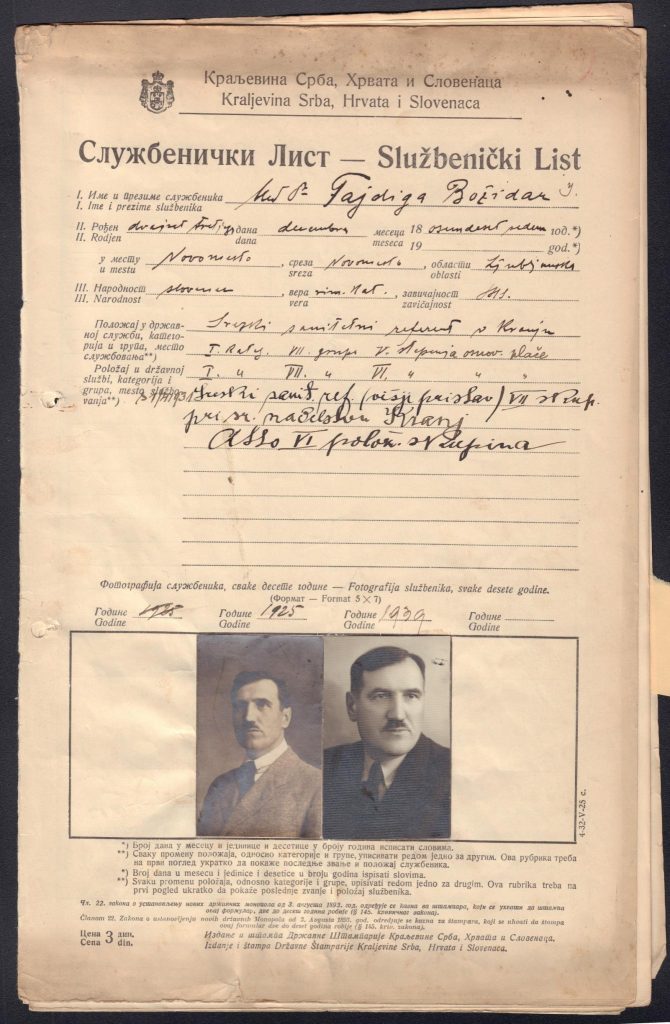 Краљевина Срба, Хрвата и Словенаца
Kraljevina Srba, Hrvata i Slovenaca
Службенички Лист — Službenički List
I. Име и презиме службеника
I. Ime i prezime službenika
Med Dr Fajdiga Božidar
II. Рођен dvajset tretjega дана decembra месеца 18 osemdeset sedem год.*)
II. Rodjen dana meseca 19 god.*)
у месту Novomesto, среза Novomesto, области Ljubljanska
u mestu sreza oblasti
III. Народност slovenec, вера rim. kat., завичајност
III. Narodnost vera zavičajnost
Положај у држав-
ној служби, катего-
рија и група, место
службовања**)
Sreski sanitetni referent v Kranju
I. kateg. VII. grupe V. stepenja osnov. plače
Položaj u državnoj
službi, kategorija i
grupa, mesto službo-
vanja**)
I. " VII. " VI. " " "
Sreski sanit. ref. (višji pristav) VII st. skup.
pri sr. načelstvu Kranj
VI polož. skupina
Фотографија службеника, сваке десете године — Fotografija službenika, svake desete godine.
(Формат — Format 5 X 7)
Године Године 1925 Године 1939 Године
Godine Godine Godine Godine
4-32-V-25 с.
*) Број дана у месецу и јединице и десетице у броју година исписати словима.
**) Сваку промену положаја, односно категорије и групе, уписивати редом једно за другим. Ова рубрика треба
на први поглед укратко да покаже последње звање и положај службеника.
*) Broj dana u mesecu i jedinice i desetice u broju godina ispisati slovima.
**) Svaku promenu položaja, odnosno kategorije i grupe, upisivati redom jedno za drugim. Ova rubrika treba na
prvi pogled ukratko da pokaže poslednje zvanje i položaj službenika.
Чл. 22. закона о установљењу нових државних монопола од 3. августа 1893. год. одређује се казна за штампара, који се ухвати да штампа
овај формулар, две до десет година робије (§ 145. кривичног закона).
Članom 22. Zakona o ustanovljenju novih državnih Monopola od 3. Augusta 1893. god. odredjuje se kazna za štampara, koji se uhvati da štampa
ovaj formular dve do deset godina robije (§ 145. kriv. zakona).
Цена 3 дин.
Cena din.
Издање и штампа Државне Штампарије Краљевине Срба, Хрвата и Словенаца.
Izdanje i štampa Državne Štamparije Kraljevine Srba, Hrvata i Slovenaca.